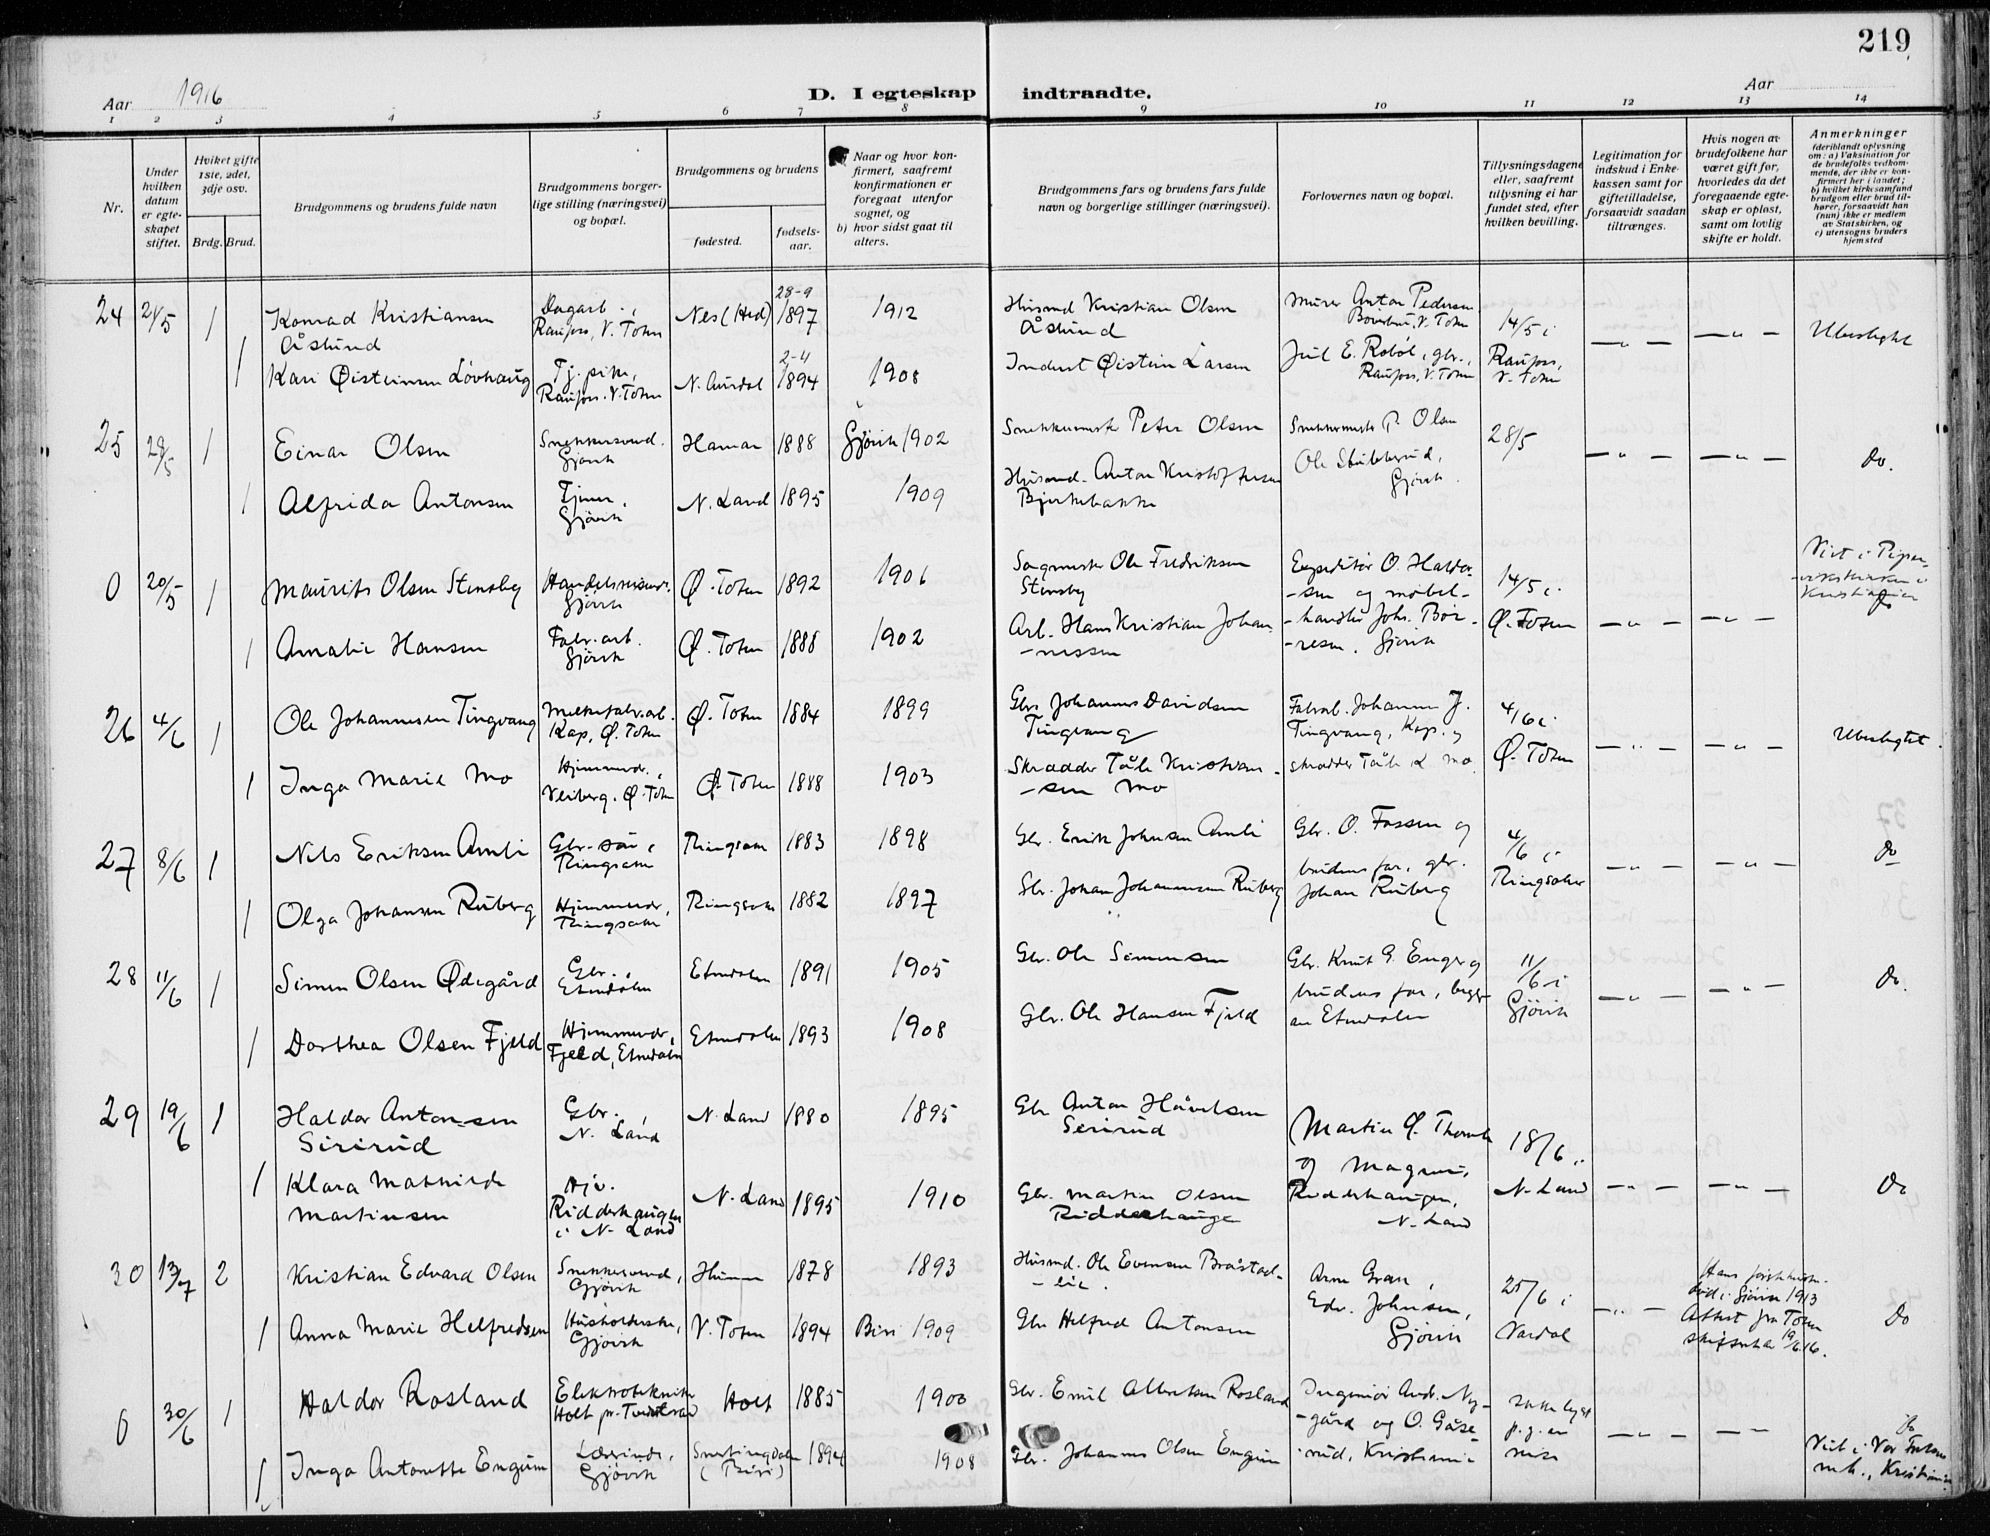 219
Aar 1916
D. I egteskap indtraadte.
Aar
1 2 3 4 5 6 7 8 9 10 11 12 13 14
Nr.
Under hvilken datum er egteskapet stiftet.
Hvilket gifte 1ste, 2det, 3dje osv.
Brdg. Brud.
Brudgommens og brudens fulde navn
Brudgommens borgerlige stilling (næringsvei) og bopæl.
Brudgommens og brudens
fødested.
fødselsaar.
Naar og hvor konfirmert, saafremt konfirmationen er foregaat utenfor sognet, og
b) hvor sidst gaat til alters.
Brudgommens fars og brudens fars fulde navn og borgerlige stillinger (næringsvei).
Forlovernes navn og bopæl.
Tillysningsdagene eller, saafremt tillysning ei har fundet sted, efter hvilken bevilling.
Legitimation for indskud i Enkekassen samt for giftetilladelse, forsaavidt saadan tiltrænges.
Hvis nogen av brudefolkene har været gift før, hvorledes da det foregaaende egteskap er opløst, samt om lovlig skifte er holdt.
Anmerkninger
(deriblandt oplysning om: a) Vaksination for de brudefolks vedkommende, der ikke er konfirmert her i landet;
b) hvilket kirkesamfund brudgom eller brud tilhører, forsaavidt han (hun) ikke er medlem av Statskirken, og
c) utensogns bruders hjemsted
24 21/5 1 Konrad Kristiansen Åslund Dagarb., Raufoss, V. Toten Nes (Hed) 28-9 1897 1912 Husmd Kristian Olsen Åslund Murer Anton Pedersen V. Toten 14/5 i Ubeslegtet
1 Kari Øisteinsen Løvhaug Tj. pike, Raufoss. V. Toten N. Aurdal 2-4 1894 1908 Inderst Øistein Larsen Jul E. gbr., Raufoss, V. Toten Raufoss, V. Toten
25 29/5 1 Einar Olsen Snekkersvend. Gjøvik Hamar 1888 Gjøvik 1902 Snekkermstr Peter Olsen Snekkermstr P. Olsen 28/5 do.
1 Alfrida Antonsen Tjener, Gjøvik N. Land 1895 1909 Husmd. Anton Kristoffersen Bjerkebakke Ole Stubberud, Gjøvik.
0 20/5 1 Maurits Olsen Stensby Handelsreisende. Gjøvik Ø. Toten 1892 1906 Sagmester Ole Fredriksen Stensby Expeditør O. Haldorsen og møbel- 14/5 i Viet i Pipervikskirken i Kristiania
1 Amalie Hansen Fabr. arb. Gjøvik Ø. Toten 1888 1902 Arb. Hans Kristian Johannessen handler Johs. Børresen. Gjøvik Ø. Toten do
26 4/6 1 Ole Johannesen Tingvang Melkefabr. arb. Kap, Ø. Toten Ø. Toten 1884 1899 Gbr. Johannes Davidsen Tingvang Fabrarb. Johannes J. Tingvang, Kap. og 4/6 i Ubeslegtet.
1 Inga Marie Mo Hjemmevr., Veiberg. Ø. Toten Ø. Toten 1888 1903 Skrædder Tåle Kristiansen Mo skrædder Tåle K Mo. Ø. Toten
27 8/6 1 Nils Eriksen Amli Gbr. søn, Ringsaker Ringsaker 1883 1898 Gbr. Erik Johnsen Amli Gbr. O. Fossen og 4/6 i do
1 Olga Johansen Ruberg Hjemmevr, Ringsaker Ringsaker 1882 1897 Gbr. Johan Johannesen Ruberg brudens far, gbr. Johan Ruberg Ringsaker
28 11/6 1 Simen Olsen Ødegård Gbr., Etnedalen Etnedalen 1891 1905 Gbr. Ole Simensen Gbr. Knut G. Enger og 11/6 i do.
1 Dorthea Olsen Fjeld Hjemmevr, Fjeld, Etnedalen Etnedalen 1893 1908 Gbr. Ole Hansen Fjeld brudens far, begge av Etnedalen Gjøvik
29 19/6 1 Haldor Antonsen Sirirud Gbr., N. Land N. Land 1880 1895 Gbr Anton Håvelsen Serirud Martin O. 18/6 i
1 Klara Mathilde Martinsen Hjv. Ridderhaugen i N. Land N. Land 1895 1910 Gbr. Martin Olsen Ridderhaugen og Magnus Ridderhaugen, N. Land N. Land do
30 13/7 2 Kristian Edvard Olsen Snekkersvend, Gjøvik 1878 1893 Husmd. Ole Evensen Bråstadlie. Arne Gran, 25/6 i Hans første hustr. død i Gjøvik 1913
1 Anna Marie Helfredsen Husholderske, Gjøvik V. Toten 1894 Biri 1909 Gbr Helfred Antonsen Edv. Johnsen, Gjøvik Vardal Attest fra Toten skifteret 19/6 16. do
0 30/6 1 Haldor Rosland Elektrotekniker Holt pr. Tvedestrand Holt 1885 1900 Gbr. Emil Albertsen Rosland Ingeniør And. Nygård og O. Gåserud, Kristiania ikke lyst p. g. av reise do
1 Inga Antonette Engum Lærerinde, Gjøvik Snertingdalen (Biri) 1894 1908 Gbr. Johannes Olsen Engum Viet i Vor Frelsers k., Kristiania